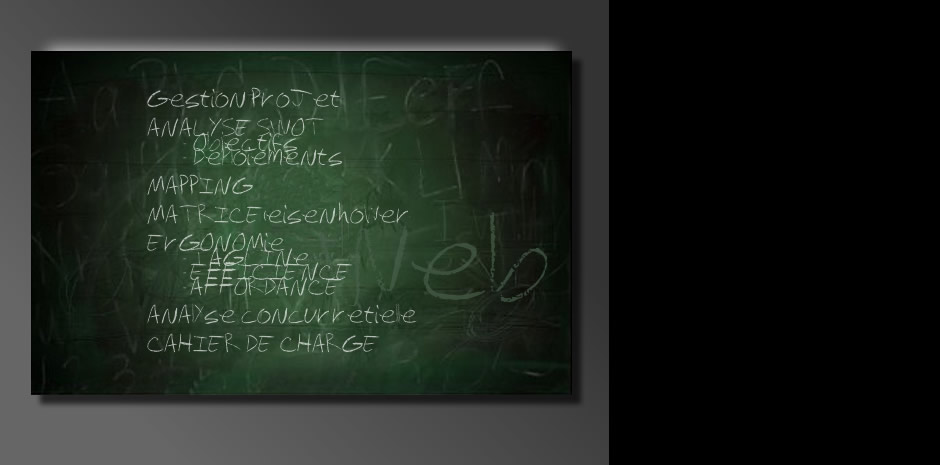 Gestion ProJet
ANALYSE SWOT
- Objectifs
- Deploiements
MAPPING
MATRICE eisenhower
ErGONOMie
- TAGLINe
- EFFICIENCE
- AFFORDANCE
ANAlyse concurretielle
CAHIER DE CHARGE
Web